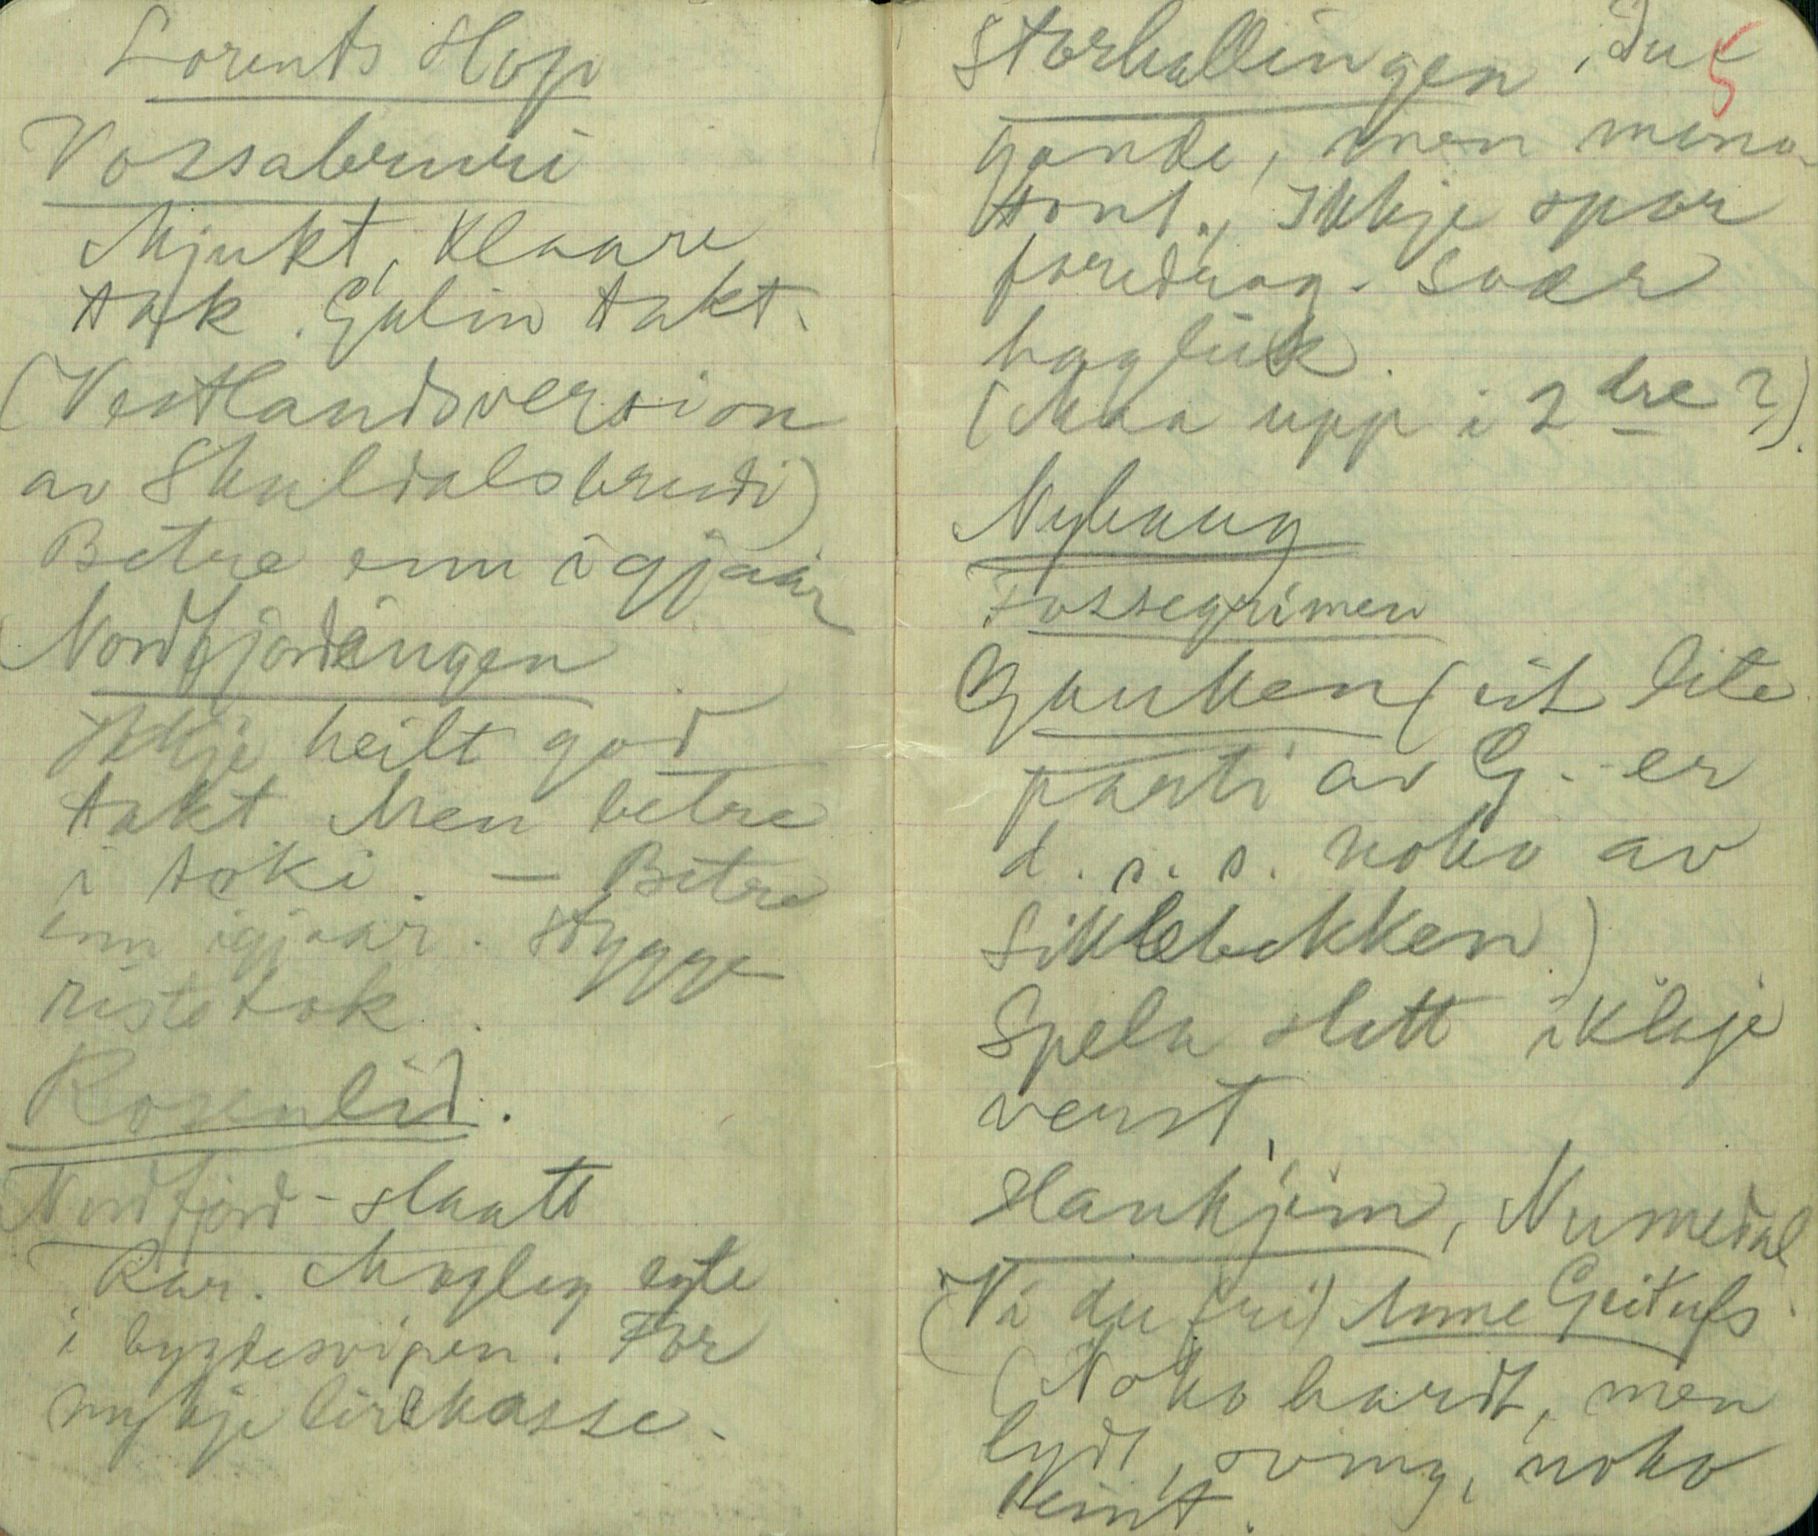 Lorents Hop
Vossabruri
Mjukt, Klaare
tak. Galin takt.
(Vestlandsversion
av Skuldalsbrudi)
Betre enn igjaar
Nordfjordingen
Ikkje heilt god
takt. Men betre
i toki. — Betre
enn igjaar. Stygge
ristetak.
Rosenlid.
Nordfjord-slaatt
Rar. Mogleg egte
i bygdesvipen. For
mykje lirekasse.
Storhallingen, Du-
5
gande, men mono-
tont., Ikkje spor
foredrag. Svær
hagleik.
(Maa upp i 2dre?).
Nyhaug
Fossegrimen
Gauken (eit lite
parti av G. er
d. s. s. noko av
Siklebekken)
Spela slett ikkje
verst.
Haukjem, Numedal
(Ni du fri) Anne Geitufs.
(Noko hardt, men
lydt, sving, noko
seint.